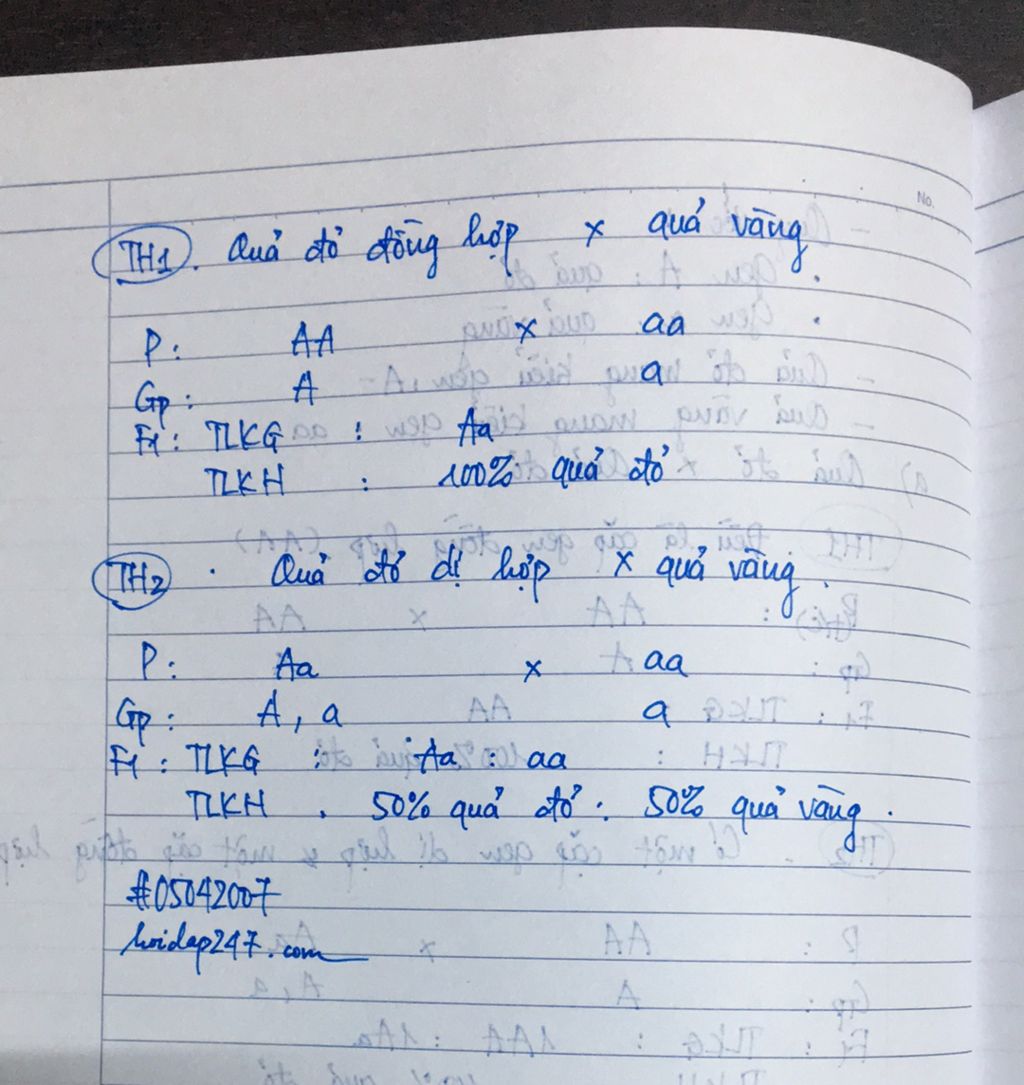 No.
TH1. Quả đỏ đồng hợp x quả vàng
P: AA x aa
Gp: A a
F1: TLKG : Aa
TLKH : 100% quả đỏ
TH2. Quả đỏ dị hợp x quả vàng.
P: Aa x aa
Gp: A, a a
F1: TLKG : Aa : aa
TLKH . 50% quả đỏ : 50% quả vàng.
#05042007
hoidap247.com